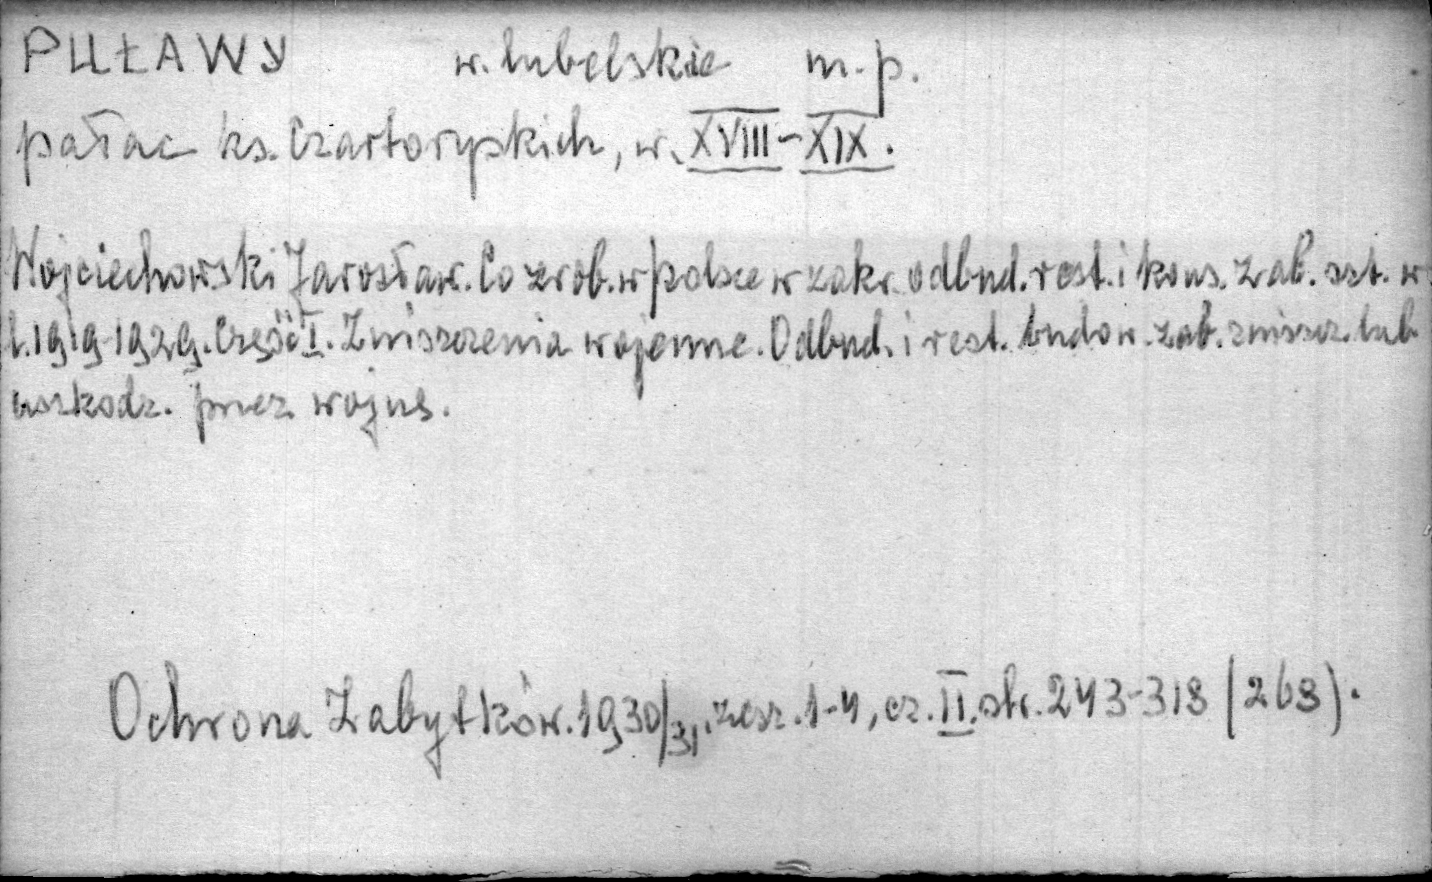 PUŁAWY w. lubelskie m. p.
pałac ks. Czartoryskich, w. XVIII-XIX.
Wojciechowski Jarosław. Co zrob. w Polsce w zakr. odbud. rest. i kons. zab. szt. w
l. 1919-1929. Część I. Zniszczenia wojenne. Odbud. i rest. budow. zab. zniszcz. lub
uszkodz. przez wojnę.
Ochrona Zabytków. 1930/31, zesz. 1-4, cz. II. str. 243-318 (268).